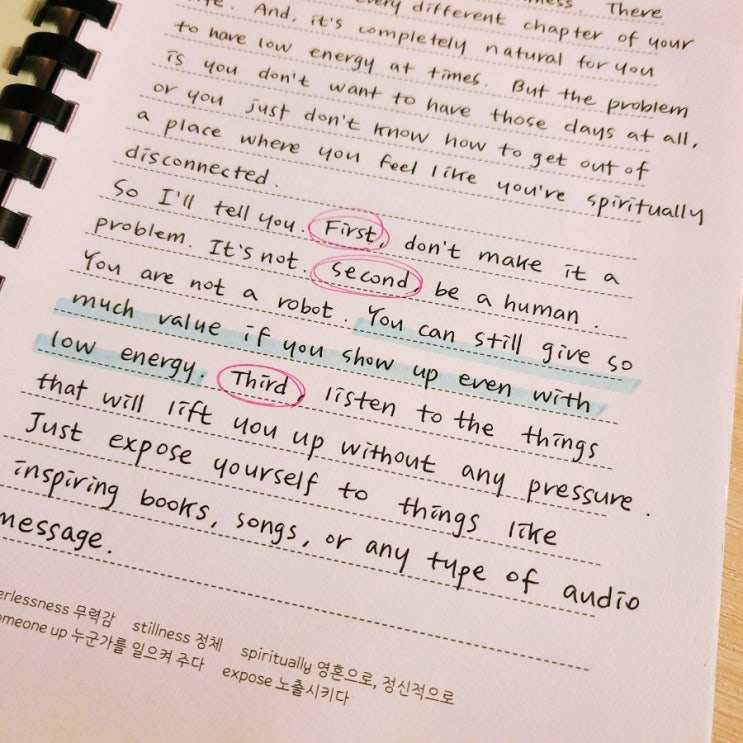 There
every different chapter of your
And, it's completely natural for you
to have low energy at times. But the problem
is you don't want to have those days at all,
or you just don't know how to get out of
a place where you feel like you're spiritually
disconnected.
So I'll tell you. First, don't make it a
problem. It's not. Second, be a human.
You are not a robot. You can still give so
much value if you show up even with
low energy. Third, listen to the things
that will lift you up without any pressure.
Just expose yourself to things like
inspiring books, songs, or any type of audio
message.
erlessness 무력감 stillness 정체 spiritually 영혼으로, 정신적으로
omeone up 누군가를 일으켜 주다 expose 노출시키다